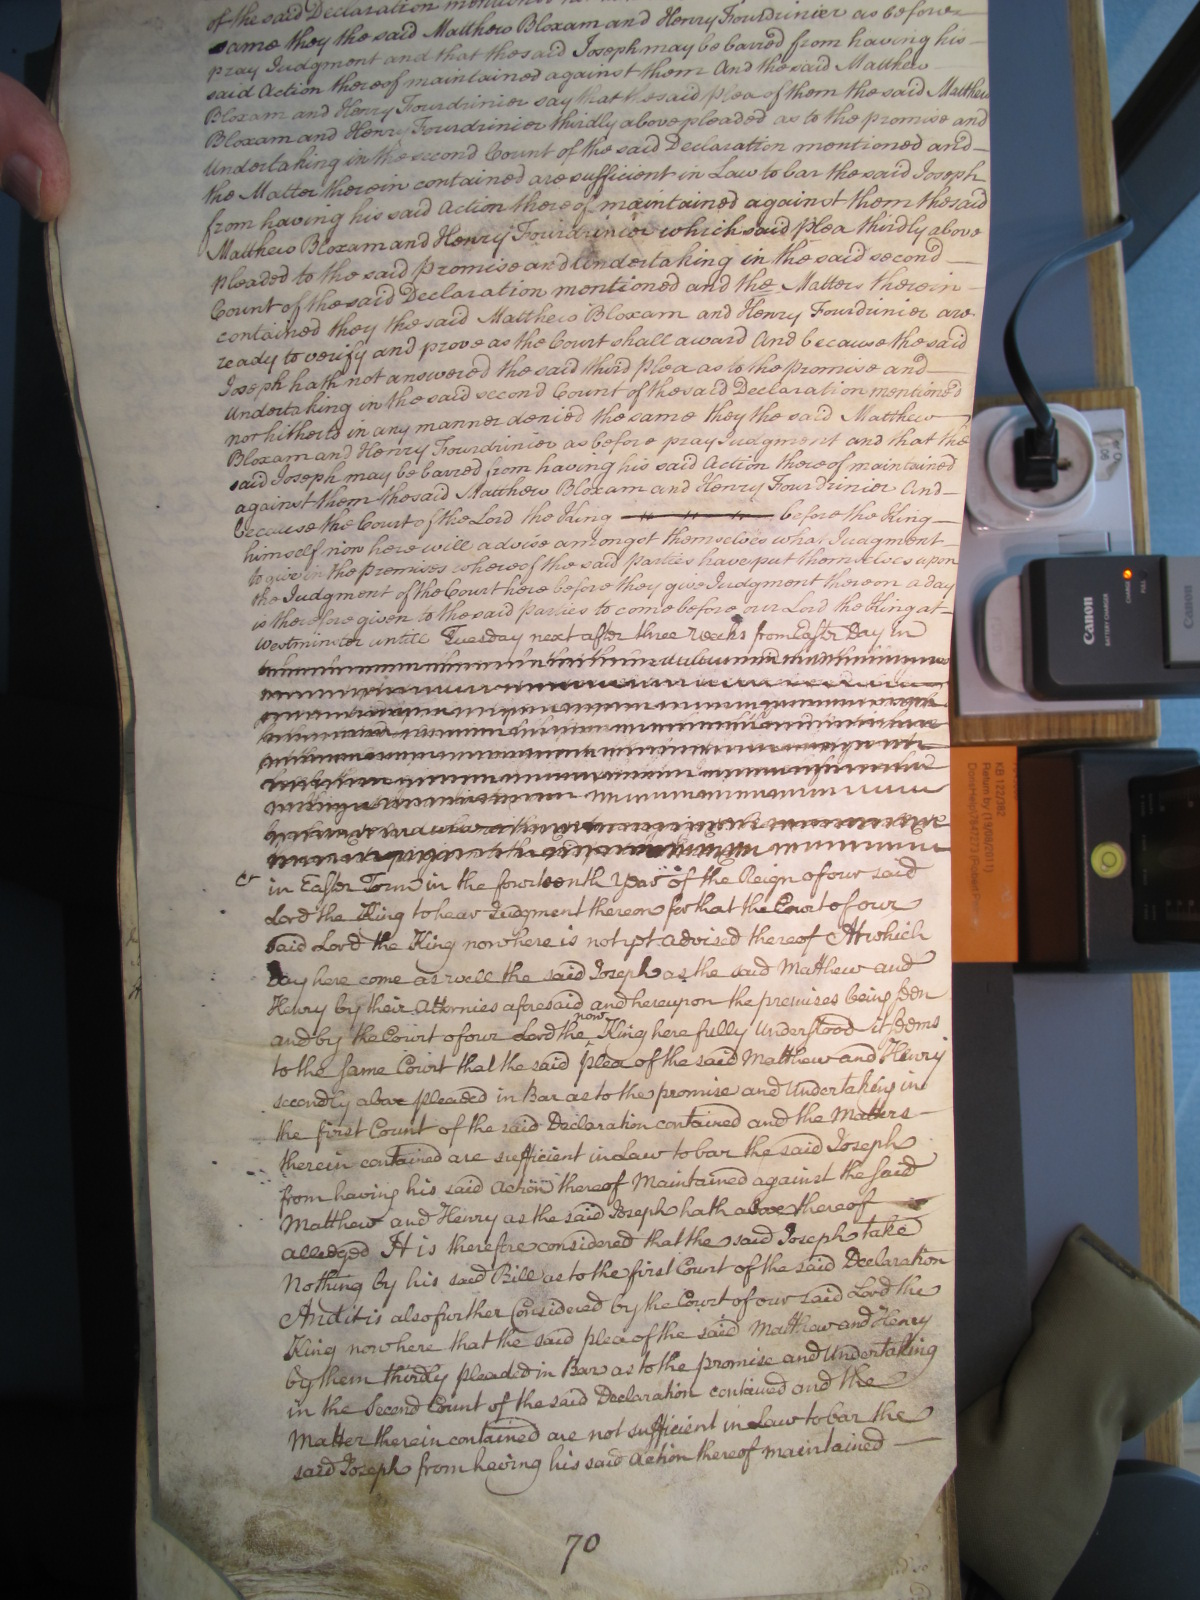 of the said Declaration mentioned
same they the said Matthew Bloxam and Henry Fourdrinier as before
pray Judgment and that the said Joseph may be barred from having his
said Action thereof maintained against them And the said Matthew
Bloxam and Henry Fourdrinier say that the said plea of them the said Matthew
Bloxam and Henry Fourdrinier thirdly above pleaded as to the promise and
Undertaking in the second Count of the said Declaration mentioned and
the Matter therein contained are sufficient in Law to bar the said Joseph
from having his said Action thereof maintained against them the said
Matthew Bloxam and Henry Fourdrinier which said plea thirdly above
pleaded to the said Promise and Undertaking in the said second
Count of the said Declaration mentioned and the Matters therein
contained they the said Matthew Bloxam and Henry Fourdrinier are
ready to verify and prove as the Court shall award And because the said
Joseph hath not answered the said third Plea as to the Promise and
Undertaking in the said second Count of the said Declaration mentioned
nor hitherto in any manner denied the same they the said Matthew
Bloxam and Henry Fourdrinier as before pray Judgment and that the
said Joseph may be barred from having his said Action thereof maintained
against them the said Matthew Bloxam and Henry Fourdrinier And
because the Court of the Lord the King before the King
himself now here will advise amongst themselves what Judgment
to give in the Premises whereof the said parties have put themselves upon
the Judgment of the Court here before they give Judgment thereon a day
is therefore given to the said Parties to come before our Lord the King at
Westminster untill Tuesday next after three weeks from Easter Day in
in Easter Term in the fourteenth year of the Reign of our said
Lord the King to hear Judgment thereon for that the Court of our
said Lord the King now here is not yet advised thereof At which
day here come as well the said Joseph as the said Matthew and
Henry by their Attornies aforesaid and hereupon the premises being seen
and by the Court of our Lord the now King here fully Understood it seems
to the same Court that the said plea of the said Matthew and Henry
secondly above pleaded in Bar as to the promise and Undertaking in
the first Count of the said Declaration contained and the Matters
therein contained are sufficient in Law to bar the said Joseph
from having his said Action thereof Maintained against the said
Matthew and Henry as the said Joseph hath above thereof
alledged It is therefore considered that the said Joseph take
Nothing by his said Bill as to the first Count of the said Declaration
And it is also further Considered by the Court of our said Lord the
King now here that the said plea of the said Matthew and Henry
by them thirdly pleaded in Bar as to the promise and Undertaking
in the Second Count of the said Declaration contained and the
Matter therein contained are not sufficient in Law to bar the
said Joseph from having his said Action thereof maintained
70
Canon
BATTERY CHARGER
CHARGE
FULL
Canon
KB 122/382
Return by (19/08/2011)